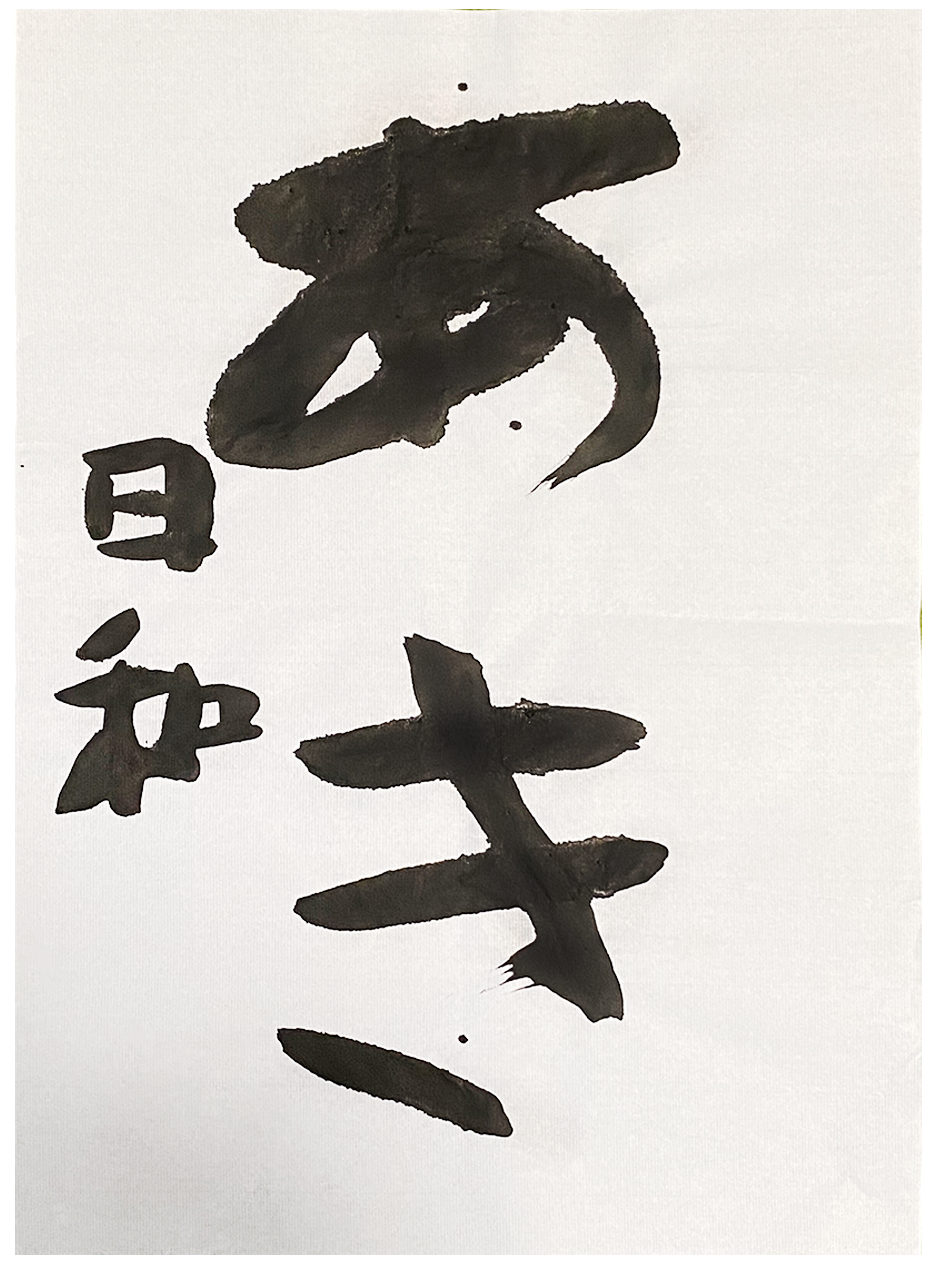 あき
日和